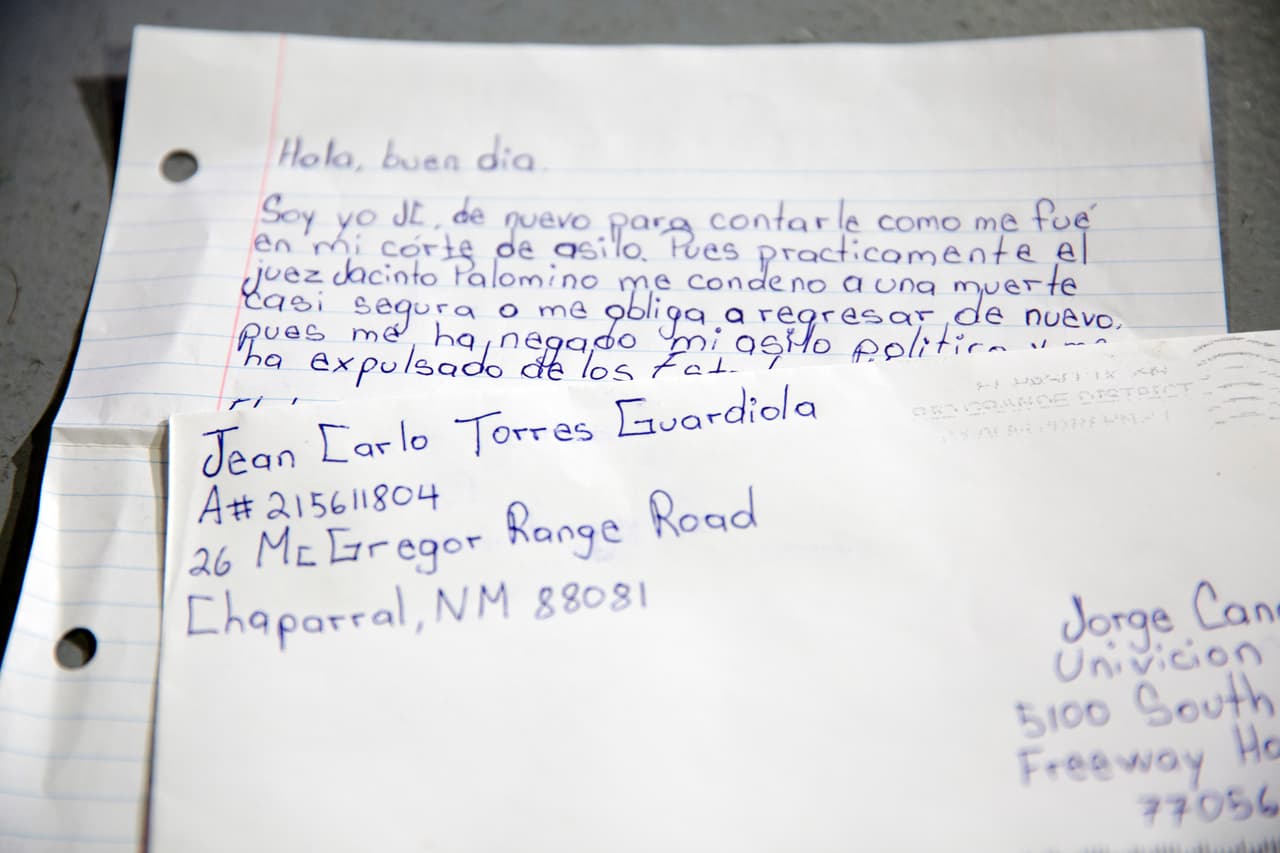 Hola, buen dia.
Soy yo JC, de nuevo para contarle como me fué
en mi córte de asilo. Pues practicamente el
juez Jacinto Palomino me condeno a una muerte
casi segura o me obliga a regresar de nuevo,
pues me ha negado mi asilo politico y me
ha expulsado de los
Jean Carlo Torres Guardiola
A# 215611804
26 McGregor Range Road
Chaparral, NM 88081
RIO GRANDE DISTRICT
Jorge Can
Univicion
5100 South
Freeway Ho
77056